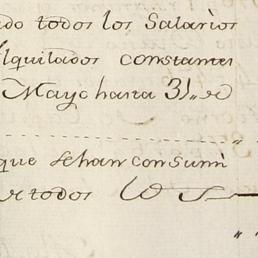 do todos los Salarios
Alquilados constantes
Mayo hasta 31 de
que se han consumi
todos